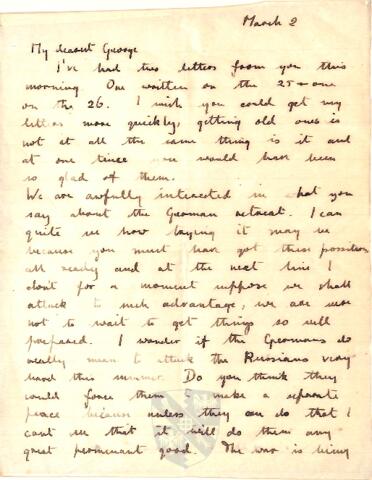 March 2
My dearest George
I've had two letters from you this
morning. One written on the 25 + one
on the 26. I wish you could get my
letters more quickly, getting old ones is
not at all the same thing is it and
at one time one would have been
so glad of them.
We are awfully interested in what you
say about the German retreat. I can
quite see how it may be
because you must have got these position
all ready and at the next line I
don't for a moment suppose we shall
attack to such advantage, we are sure
not to wait to get things so well
prepared. I wonder if the Germans do
really mean to attack the Russians very
hard this summer. Do you think they
could force them to make a separate
peace because unless they can do that I
cant see that it will do them any
great permanent good. The war is being